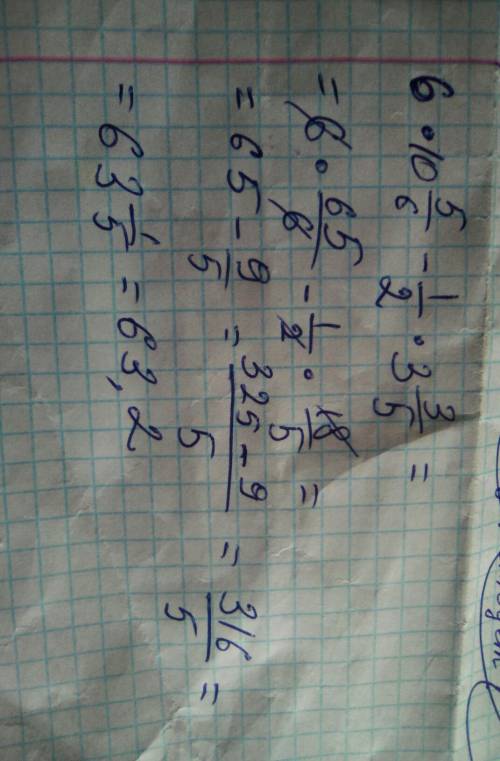 6 · 10 5/6 - 1/2 · 3 3/5 =
= 6 · 65/6 - 1/2 · 18/5 =
= 65 - 9/5 = 325 - 9/5 = 316/5 =
= 63 1/5 = 63,2